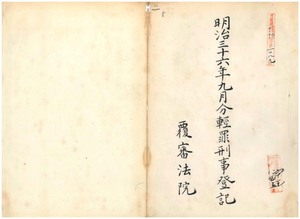 明治三十六年九月分輕罪刑事登記
覆審法院